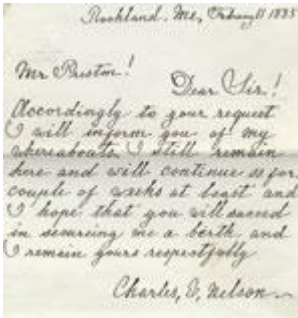 Rockland. Me, February 11 1885
Mr Preston!
Dear Sir!
Accordingly to your request
I will inform you of my
whereabouts I still remain
here and will continue so for
couple of weeks at least and
I hope that you will succed
in securing me a birth and
I remain yours respectfully
Charles, Nelson